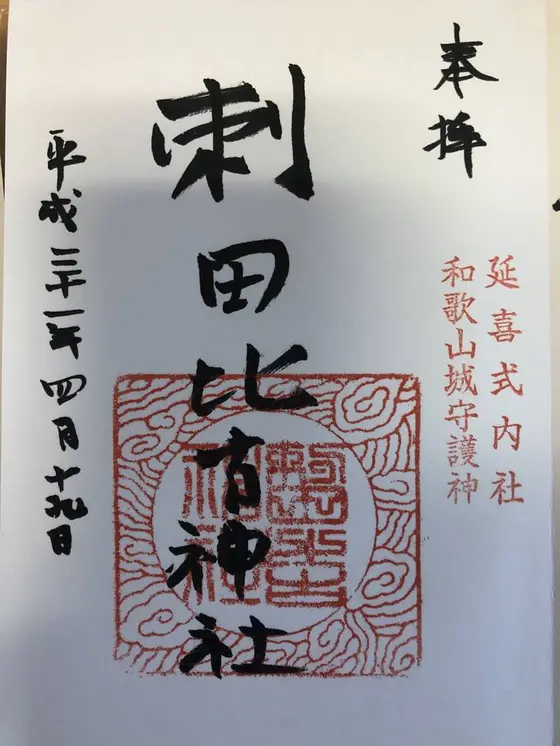 奉拝
延喜式内社
和歌山城守護神
刺田比古神社
平成三十一年四月十九日